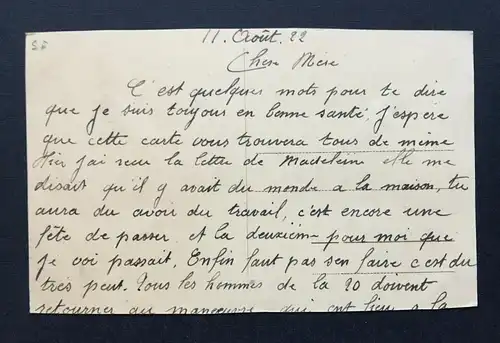 11. Août. 22
Chère Mère
C'est quelques mots pour te dire
que je suis toujous en bonne santé, j'espère
que cette carte vous trouvera tous de même
Hier j'ai recu la lettre de Madelein elle me
disait qu'il y avait du monde a la maison, tu
aura du avoir du travail, c'est encore une
fête de passer et la deuxièm pour moi que
je voi passait. Enfin faut pas sen faire c'est du
très peut. Tous les hommes de la 20 doivent
retourner au manœuvre qui ont lieu a la